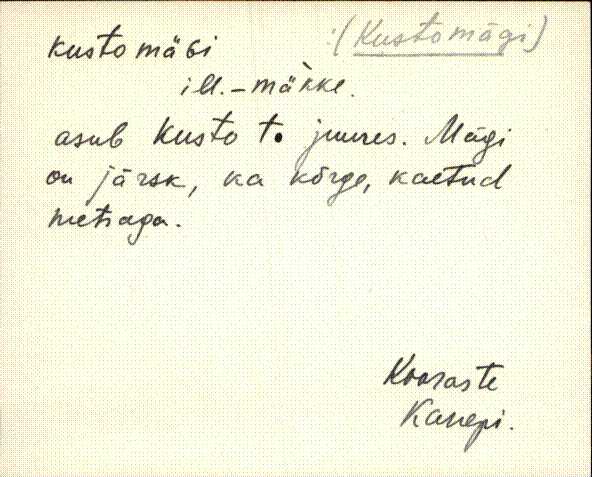 kusto mäGi :(Kustomägi)
ill. - mä̀kke.
asub Kusto t. juures. Mägi
on järsk, ka kõrge, kaetud
metsaga.
Kooraste
Kanepi.